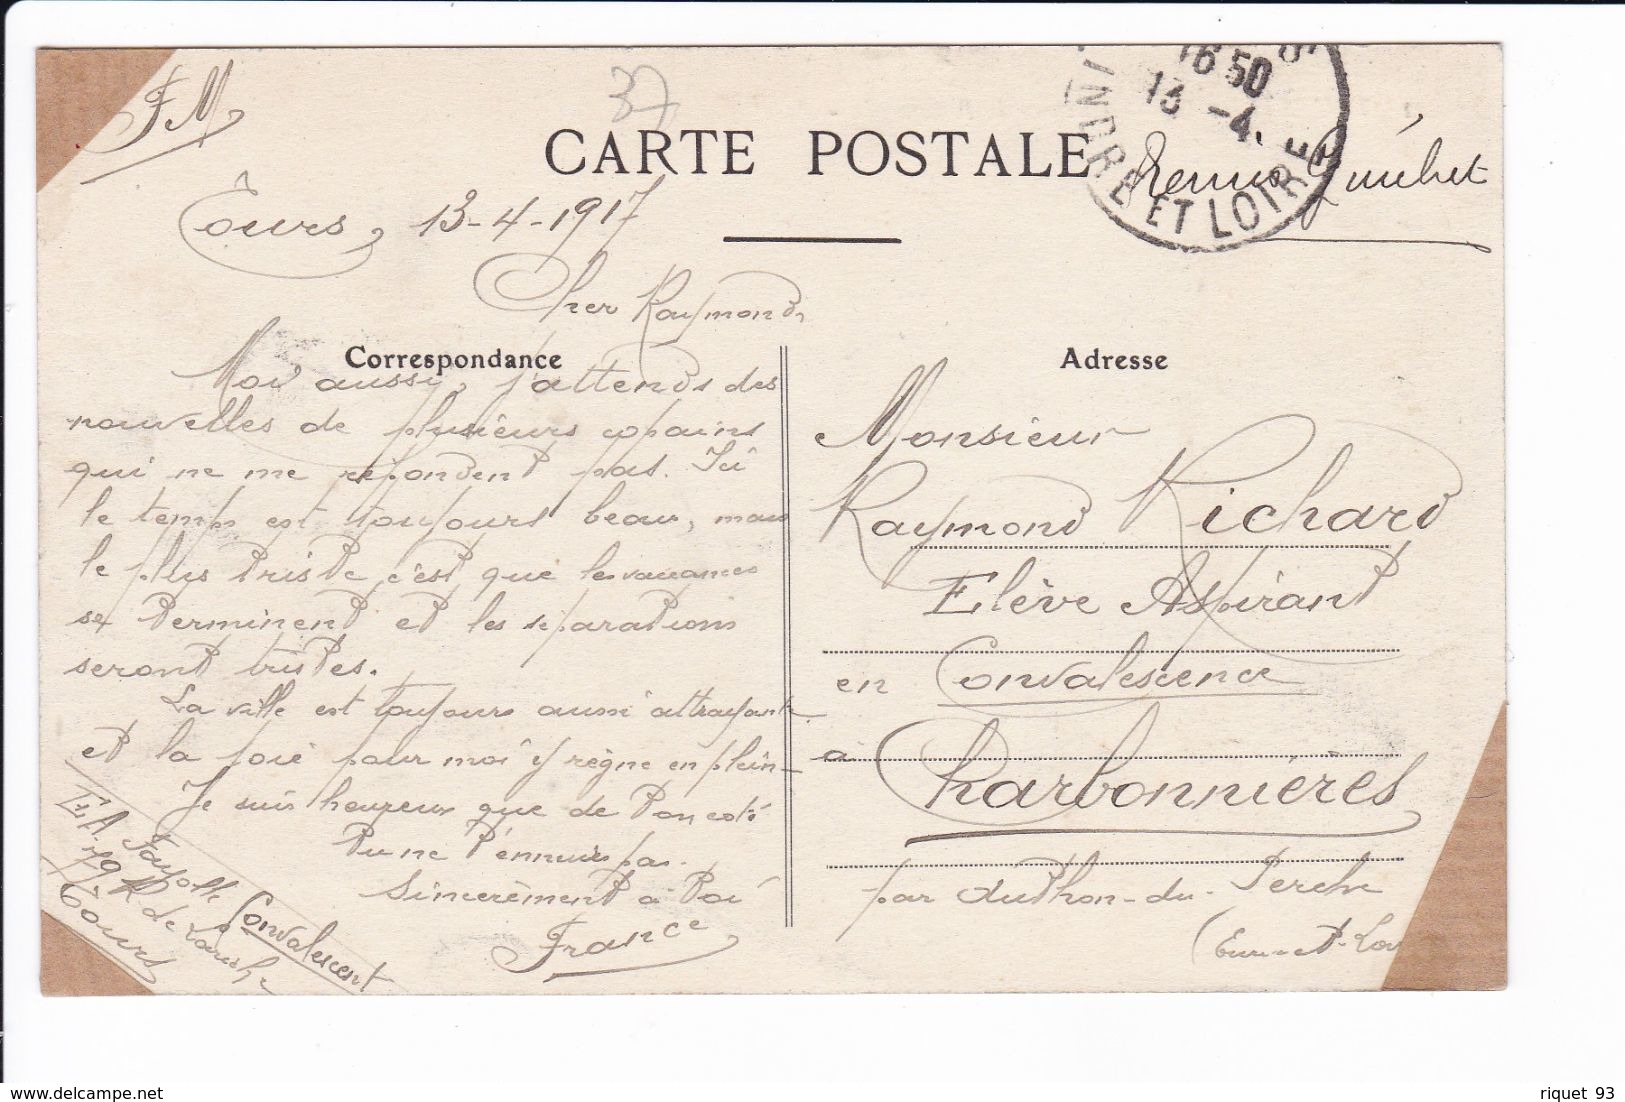 FM
37
CARTE POSTALE
16 50
13 -4.
INDRE ET LOIRE
Tours, 13-4-1917
Cher Raymond,
Correspondance
Moi aussi, j'attends des
nouvelles de plusieurs copains
qui ne me répondent pas. Ici
le temps est toujours beau, mais
le plus triste c'est que les vacances
se terminent et les séparations
seront tristes.
La ville est toujours aussi attrayante
et la joie pour moi y règne en plein
Je suis heureux que de ton côté
tu ne t'ennuies pas.
Sincèrement à toi
France
E.A. Fayolle Convalescent
79 R de
Tours
Adresse
Monsieur
Raymond Richard
Elève Aspirant
en Convalescence
à Charbonnières
par Authon-du-Perche
(Eure-et-Loir
delcampe.net
riquet 93